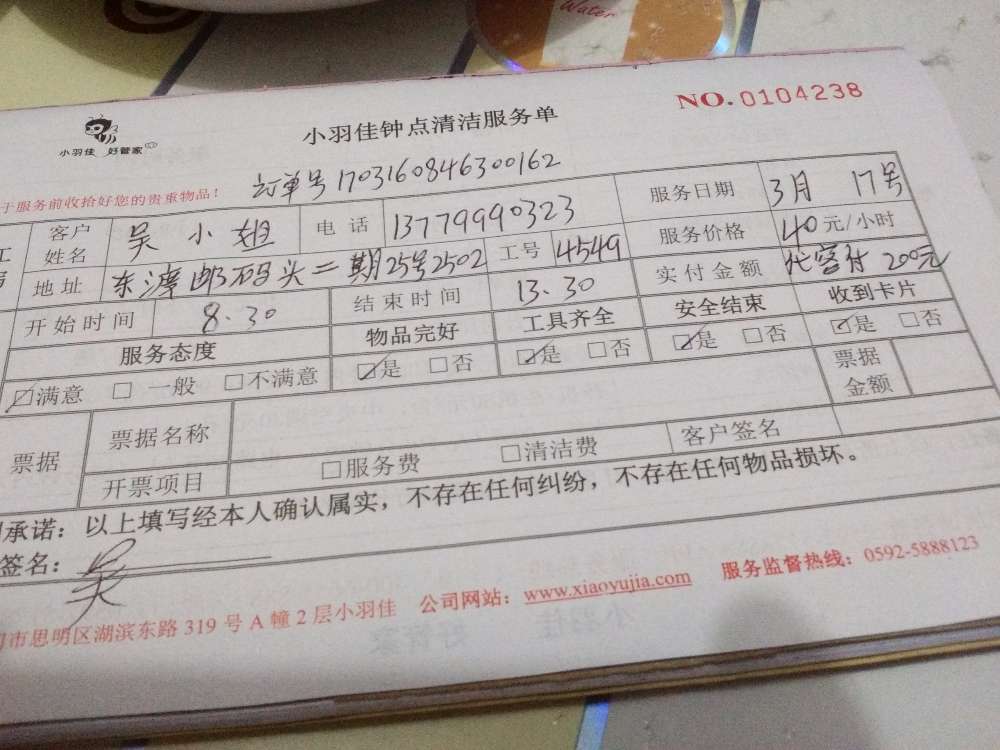 Water
NO.0104238
小羽佳 好管家
小羽佳钟点清洁服务单
于服务前收拾好您的贵重物品!
订单号 1703160846300162
客户姓名 吴小姐 电话 13779990323 服务日期 3月 17号
地址 东渡邮码头二期25号2502 工号 4549 服务价格 40元/小时
开始时间 8.30 结束时间 13.30 实付金额 客付 200元
服务态度 物品完好 工具齐全 安全结束 收到卡片
☑满意 □一般 □不满意 ☑是 □否 ☑是 □否 ☑是 □否 ☑是 □否
票据 票据名称 票据金额
开票项目 □服务费 □清洁费 客户签名
承诺:以上填写经本人确认属实,不存在任何纠纷,不存在任何物品损坏。
签名: 吴
市思明区湖滨东路 319 号 A 幢 2 层小羽佳 公司网站:www.xiaoyujia.com 服务监督热线:0592-5888123